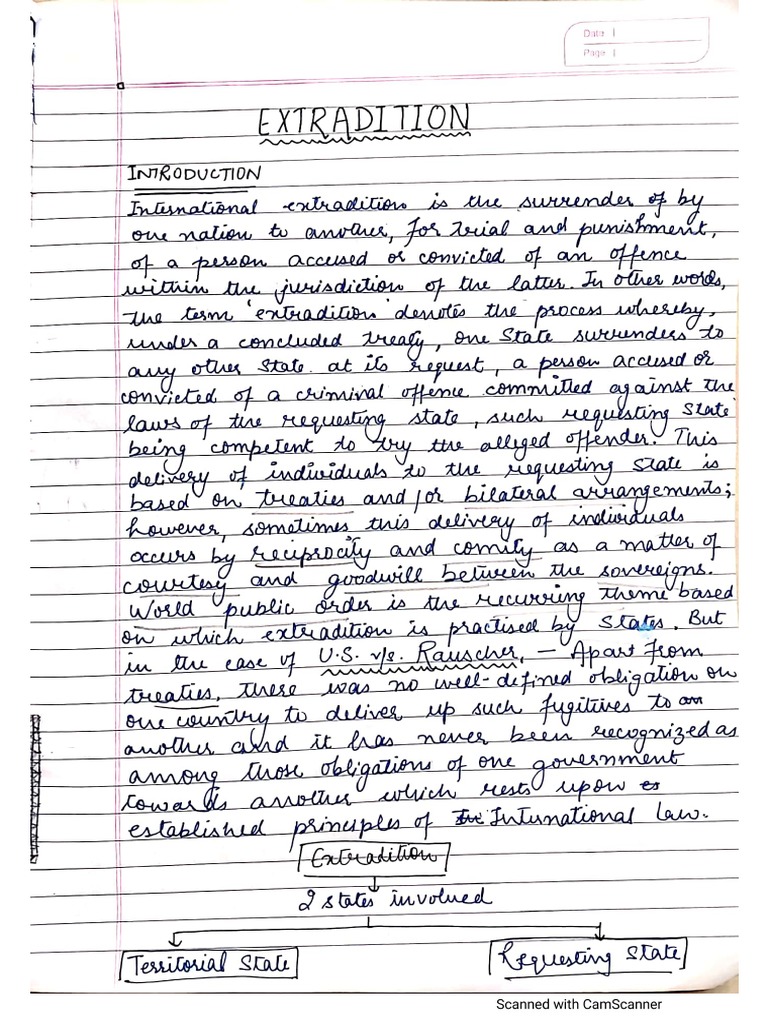 Date |
Page |
EXTRADITION
INTRODUCTION
International extradition is the surrender of by
one nation to another, for trial and punishment,
of a person accused or convicted of an offence
within the jurisdiction of the latter. In other words,
the term 'extradition' denotes the process whereby,
under a concluded treaty, one State surrenders to
any other State at its request, a person accused or
convicted of a criminal offence committed against the
laws of the requesting state, such requesting State
being competent to try the alleged offender. This
delivery of individuals to the requesting State is
based on treaties and/or bilateral arrangements;
however, sometimes this delivery of individuals
occurs by reciprocity and comity as a matter of
courtesy and goodwill between the sovereigns.
World public order is the recurring theme based
on which extradition is practised by States. But
in the case of U.S. v/s. Rauscher, – Apart from
treaties, there was no well-defined obligation on
one country to deliver up such fugitives to an
another and it has never been recognized as
among those obligations of one government
towards another which rests upon es
established principles of In International law.
Extradition
2 states involved
Territorial State
Requesting State
Scanned with CamScanner